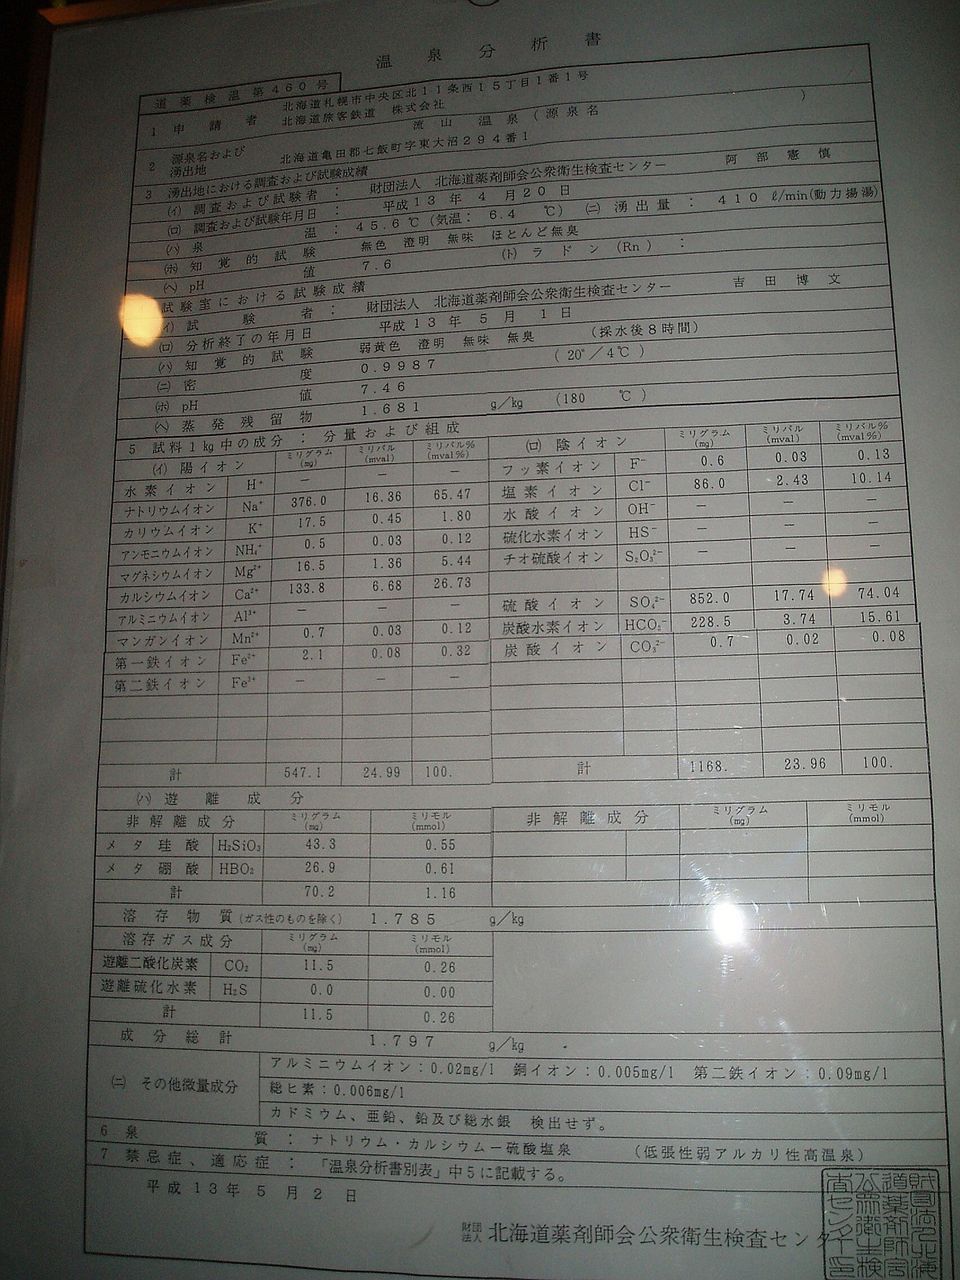 温泉分析書
道薬検温第460号
1 申請者 北海道札幌市中央区北11条西15丁目1番1号
北海道旅客鉄道 株式会社
2 源泉名および湧出地 流山温泉(源泉名 )
北海道亀田郡七飯町字東大沼294番1
3 湧出地における調査および試験成績
(イ) 調査および試験者: 財団法人 北海道薬剤師会公衆衛生検査センター 阿部憲慎
(ロ) 調査および試験年月日: 平成13年4月20日
(ハ) 泉温: 45.6℃(気温: 6.4 ℃) (ニ) 湧出量: 410 ℓ/min(動力揚湯)
(ホ) 知覚的試験 無色 澄明 無味 ほとんど無臭
(ヘ) pH値 7.6 (ト) ラドン(Rn):
試験室における試験成績
(イ) 試験者: 財団法人 北海道薬剤師会公衆衛生検査センター 吉田博文
(ロ) 分析終了の年月日 平成13年5月1日
(ハ) 知覚的試験 弱黄色 澄明 無味 無臭 (採水後8時間)
(ニ) 密度 0.9987 (20°/4℃)
(ホ) pH値 7.46
(ヘ) 蒸発残留物 1.681 g/kg (180 ℃)
5 試料1kg中の成分: 分量および組成
(イ) 陽イオン ミリグラム(mg) ミリバル(mval) ミリバル%(mval%)
水素イオン H⁺ − − −
ナトリウムイオン Na⁺ 376.0 16.36 65.47
カリウムイオン K⁺ 17.5 0.45 1.80
アンモニウムイオン NH₄⁺ 0.5 0.03 0.12
マグネシウムイオン Mg²⁺ 16.5 1.36 5.44
カルシウムイオン Ca²⁺ 133.8 6.68 26.73
アルミニウムイオン Al³⁺ − − −
マンガンイオン Mn²⁺ 0.7 0.03 0.12
第一鉄イオン Fe²⁺ 2.1 0.08 0.32
第二鉄イオン Fe³⁺ − − −
計 547.1 24.99 100.
(ロ) 陰イオン ミリグラム(mg) ミリバル(mval) ミリバル%(mval%)
フッ素イオン F⁻ 0.6 0.03 0.13
塩素イオン Cl⁻ 86.0 2.43 10.14
水酸イオン OH⁻ − − −
硫化水素イオン HS⁻ − − −
チオ硫酸イオン S₂O₃²⁻ − − −
硫酸イオン SO₄²⁻ 852.0 17.74 74.04
炭酸水素イオン HCO₃⁻ 228.5 3.74 15.61
炭酸イオン CO₃²⁻ 0.7 0.02 0.08
計 1168. 23.96 100.
(ハ) 遊離成分
非解離成分 ミリグラム(mg) ミリモル(mmol) 非解離成分 ミリグラム(mg) ミリモル(mmol)
メタ珪酸 H₂SiO₃ 43.3 0.55
メタ硼酸 HBO₂ 26.9 0.61
計 70.2 1.16
溶存物質(ガス性のものを除く) 1.785 g/kg
溶存ガス成分 ミリグラム(mg) ミリモル(mmol)
遊離二酸化炭素 CO₂ 11.5 0.26
遊離硫化水素 H₂S 0.0 0.00
計 11.5 0.26
成分総計 1.797 g/kg
(ニ) その他微量成分
アルミニウムイオン:0.02mg/l 銅イオン:0.005mg/l 第二鉄イオン:0.09mg/l
総ヒ素:0.006mg/l
カドミウム、亜鉛、鉛及び総水銀 検出せず。
6 泉質: ナトリウム・カルシウム−硫酸塩泉 (低張性弱アルカリ性高温泉)
7 禁忌症、適応症: 「温泉分析書別表」中5に記載する。
平成13年5月2日
財団法人 北海道薬剤師会公衆衛生検査センター